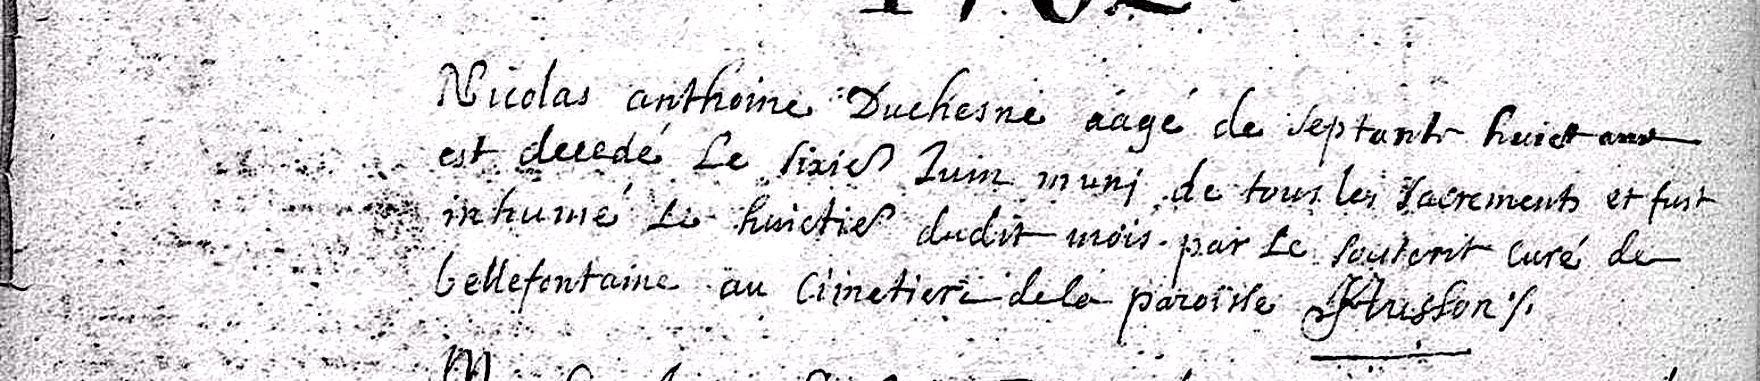 Nicolas anthoine Duchesne aagé de septante huict ans
est decedé Le sixie Juin muni de tous les sacrements et fust
inhumé Le huictie dudit mois par Le souscrit curé de
bellefontaine au Cimetiere de la paroisse